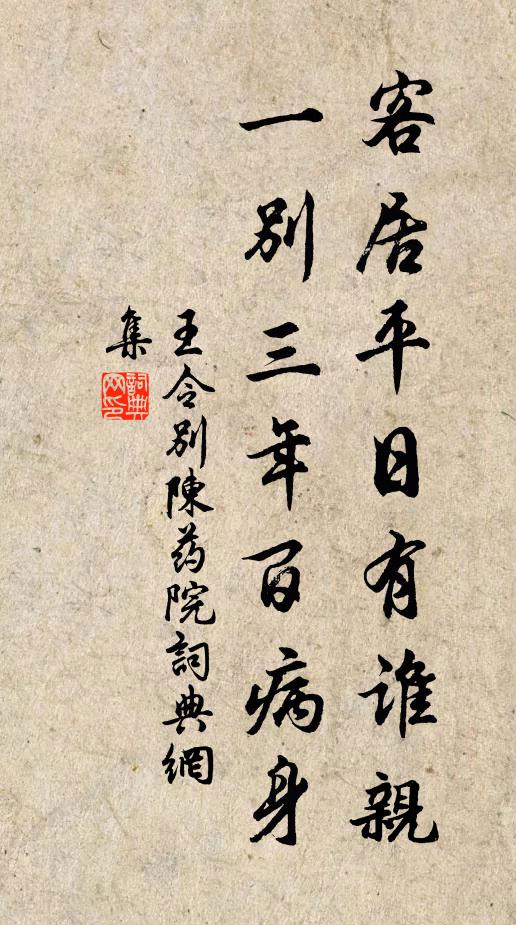 客居平日有誰親
一別三年百病身
王令別陳药院詞典網
集
詞典網印